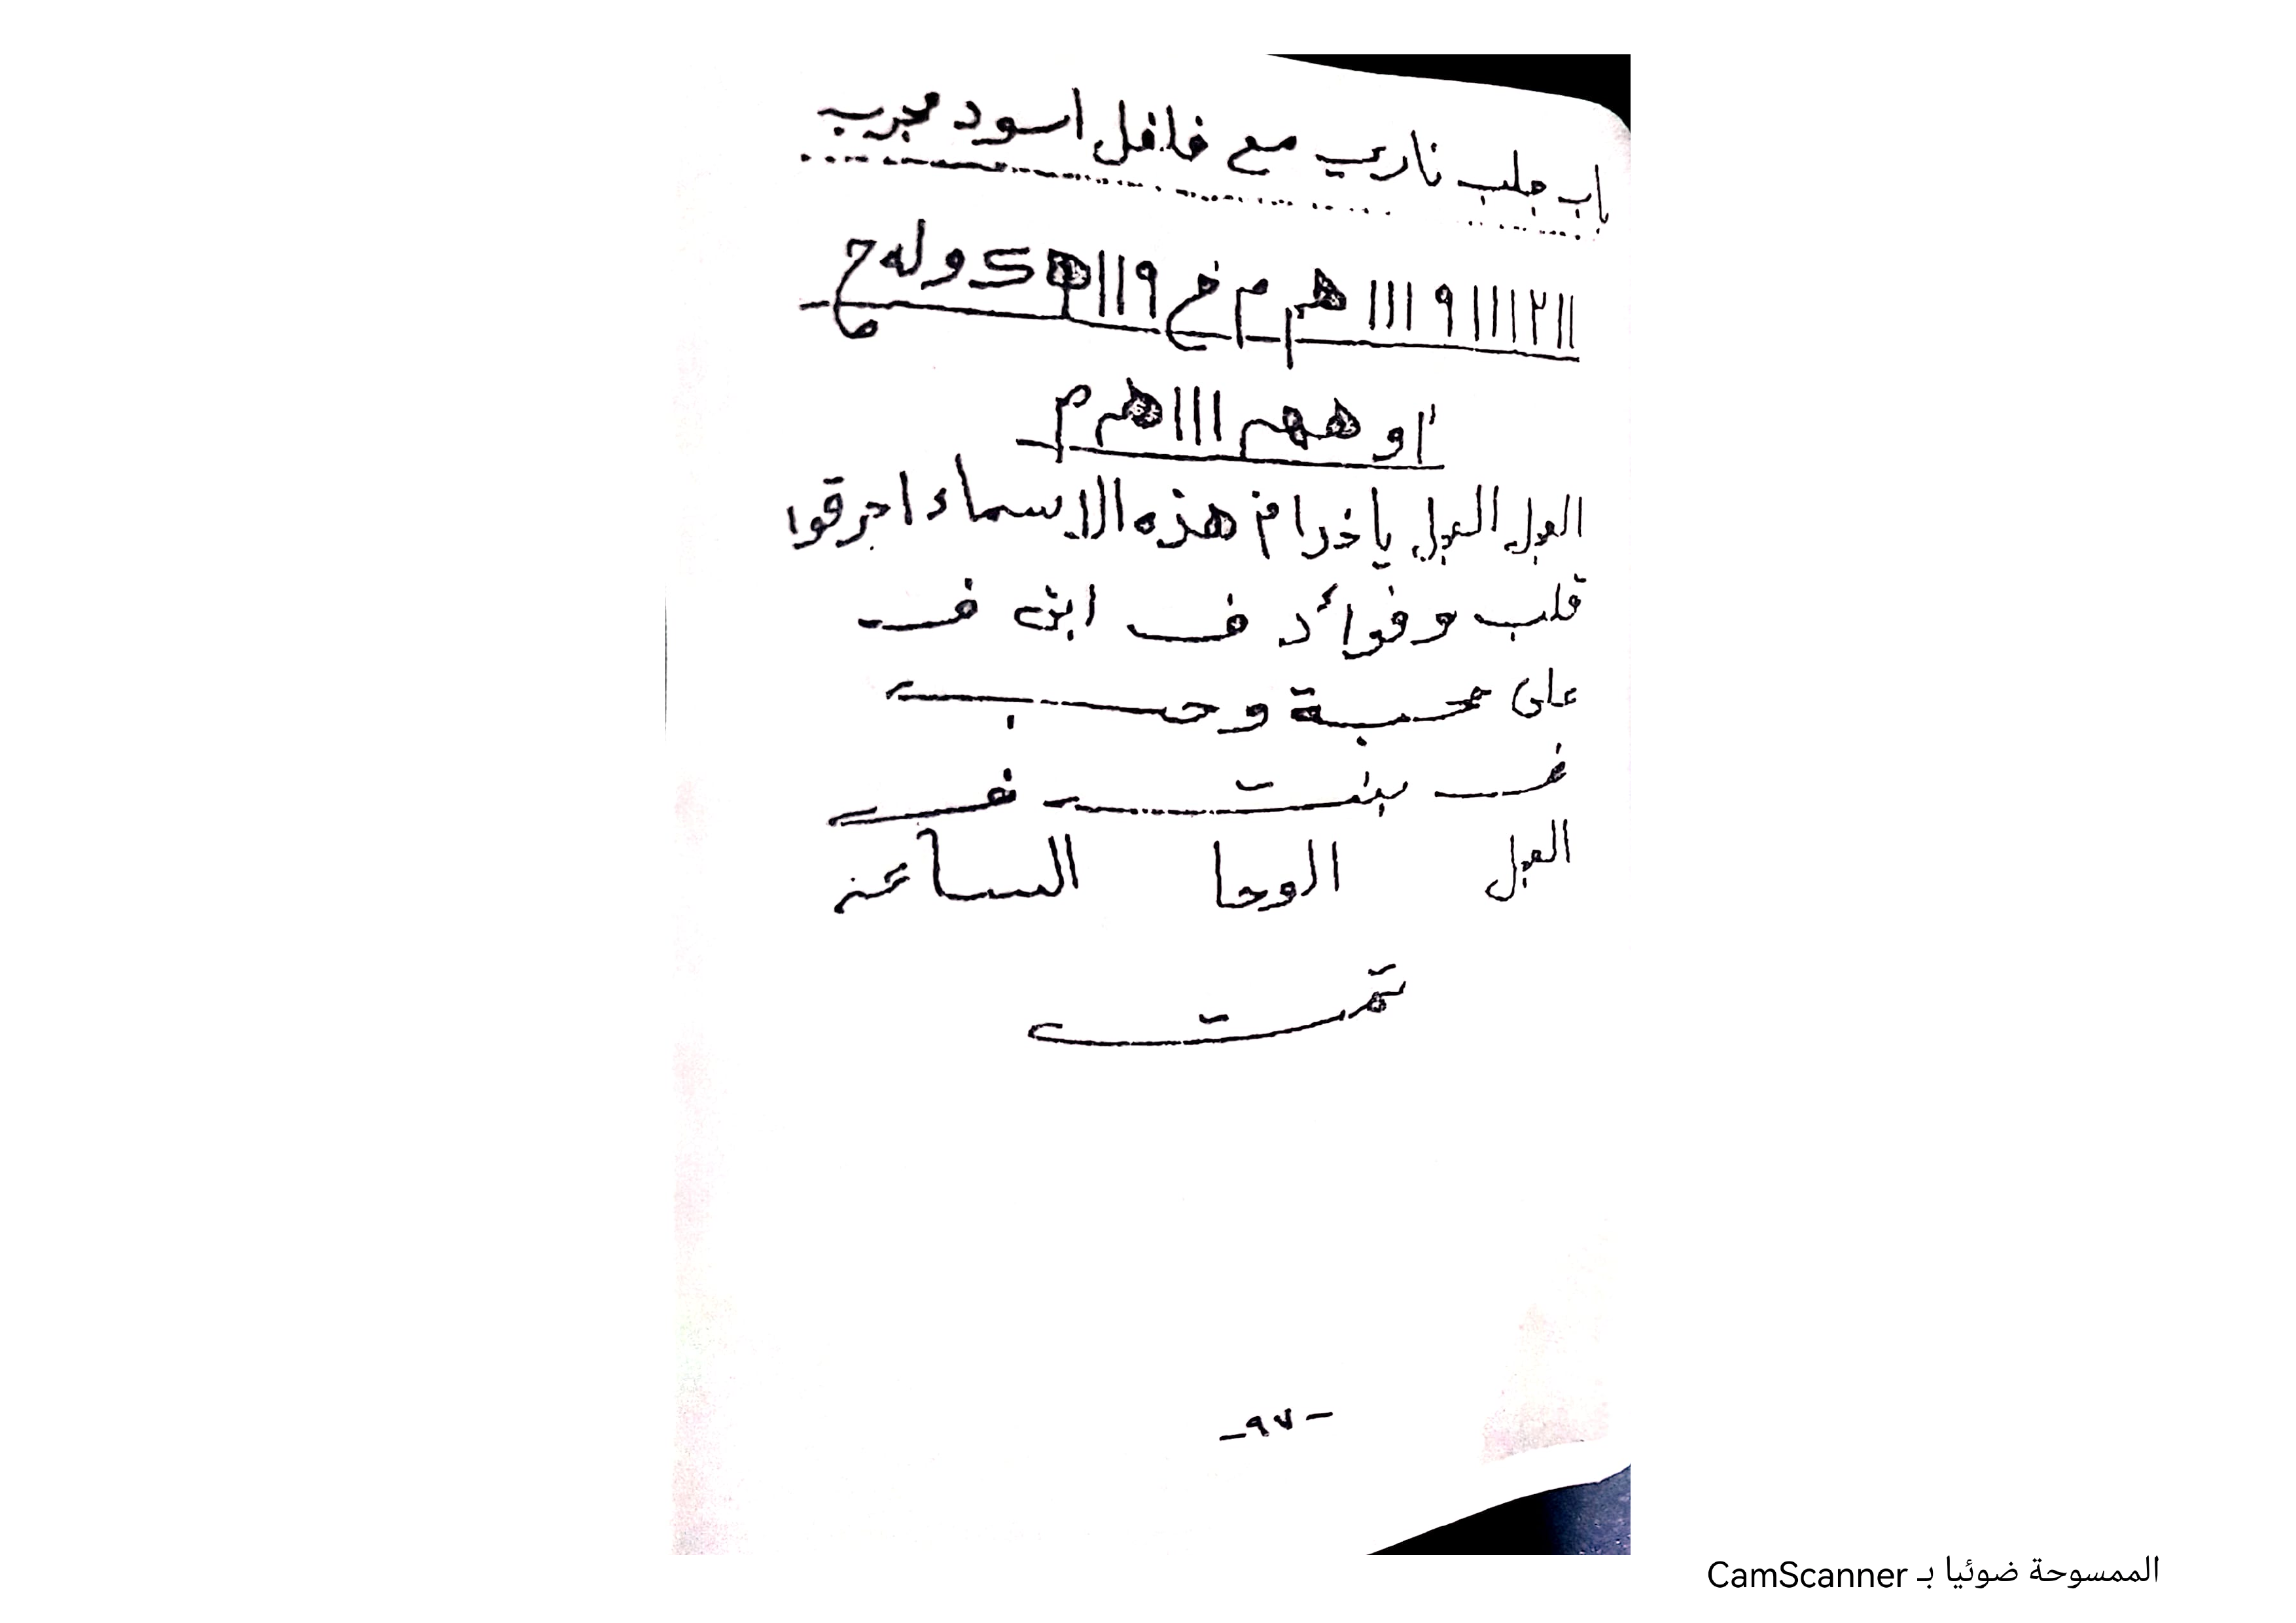 باب جلب ناري مع فلفل اسود مجرب
١١٢١١١١٩١١١ هم م خ ١١٩ هـ ك و له ح
او ههم ١١١ هم م
العجل العجل يا خدام هذه الاسماء احرقوا
قلب و فوائد ف ابن ف
على محبة و حب
ف بنت ف
العجل الوحا الساعة
تمت
- ٩٧ -
الممسوحة ضوئيا بـ CamScanner